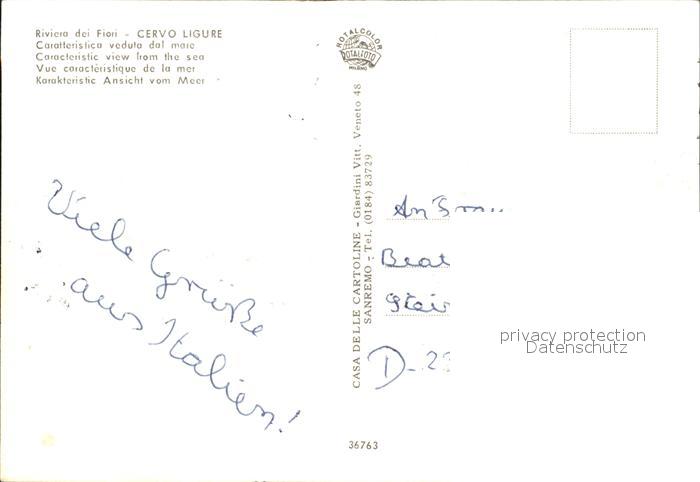 Riviera dei Fiori - CERVO LIGURE
Caratteristica veduta dal mare
Characteristic view from the sea
Vue caractéristique de la mer
Karakteristic Ansicht vom Meer
Viele Grüße
aus Italien!
ROTALCOLOR
ROTALFOTO
MILANO
CASA DELLE CARTOLINE - Giardini Vitt. Veneto 48
SANREMO - Tel. (0184) 83729
An
Beat
D-22
privacy protection
Datenschutz
36763